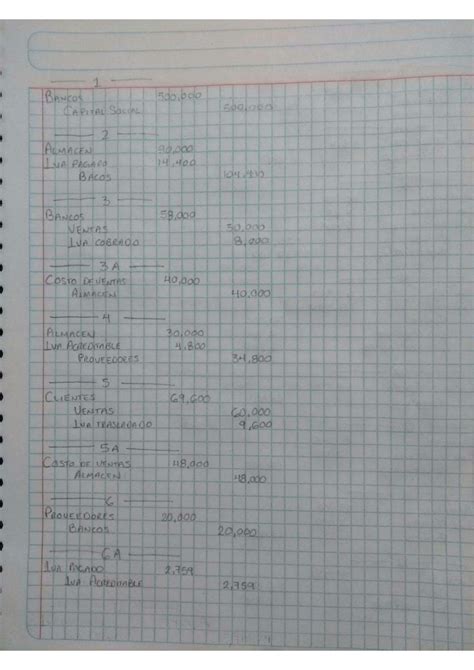 1
BANCOS 500,000
CAPITAL SOCIAL 500,000
2
ALMACEN 90,000
IVA PAGADO 14,400
BACOS 104,400
3
BANCOS 58,000
VENTAS 50,000
IVA COBRADO 8,000
3A
COSTO DE VENTAS 40,000
ALMACEN 40,000
4
ALMACEN 30,000
IVA ACREDITABLE 4,800
PROVEEDORES 34,800
5
CLIENTES 69,600
VENTAS 60,000
IVA TRASLADADO 9,600
5A
COSTO DE VENTAS 48,000
ALMACEN 48,000
6
PROVEEDORES 20,000
BANCOS 20,000
6A
IVA PAGADO 2,759
IVA ACREDITABLE 2,759